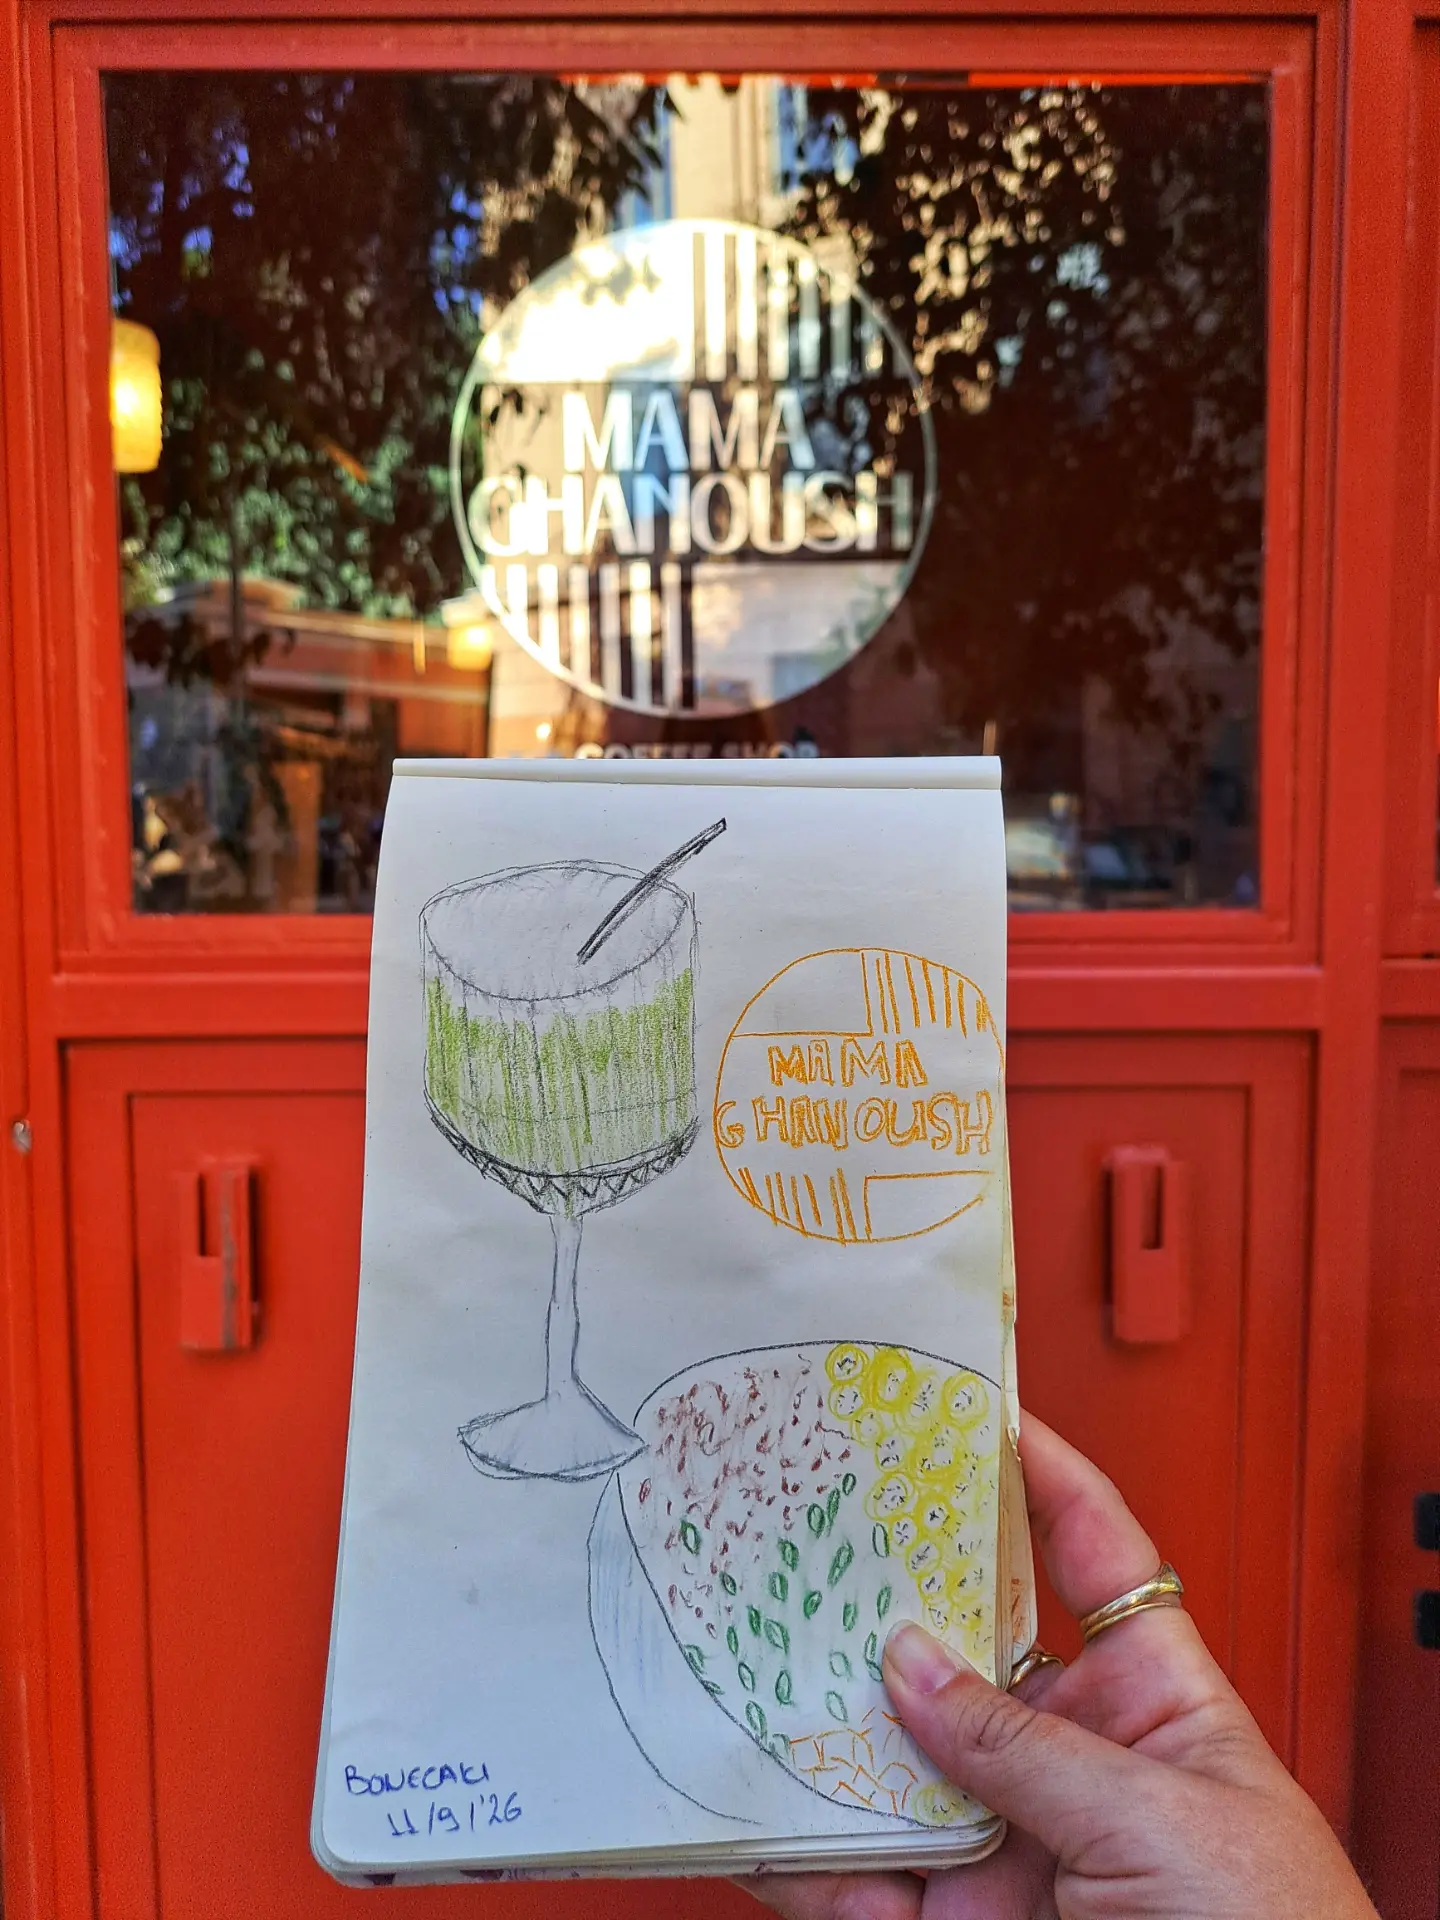 MAMA
GHANOUSH
COFFEE SHOP
MAMA
GHANOUSH
BONECAKI
11/9/'26